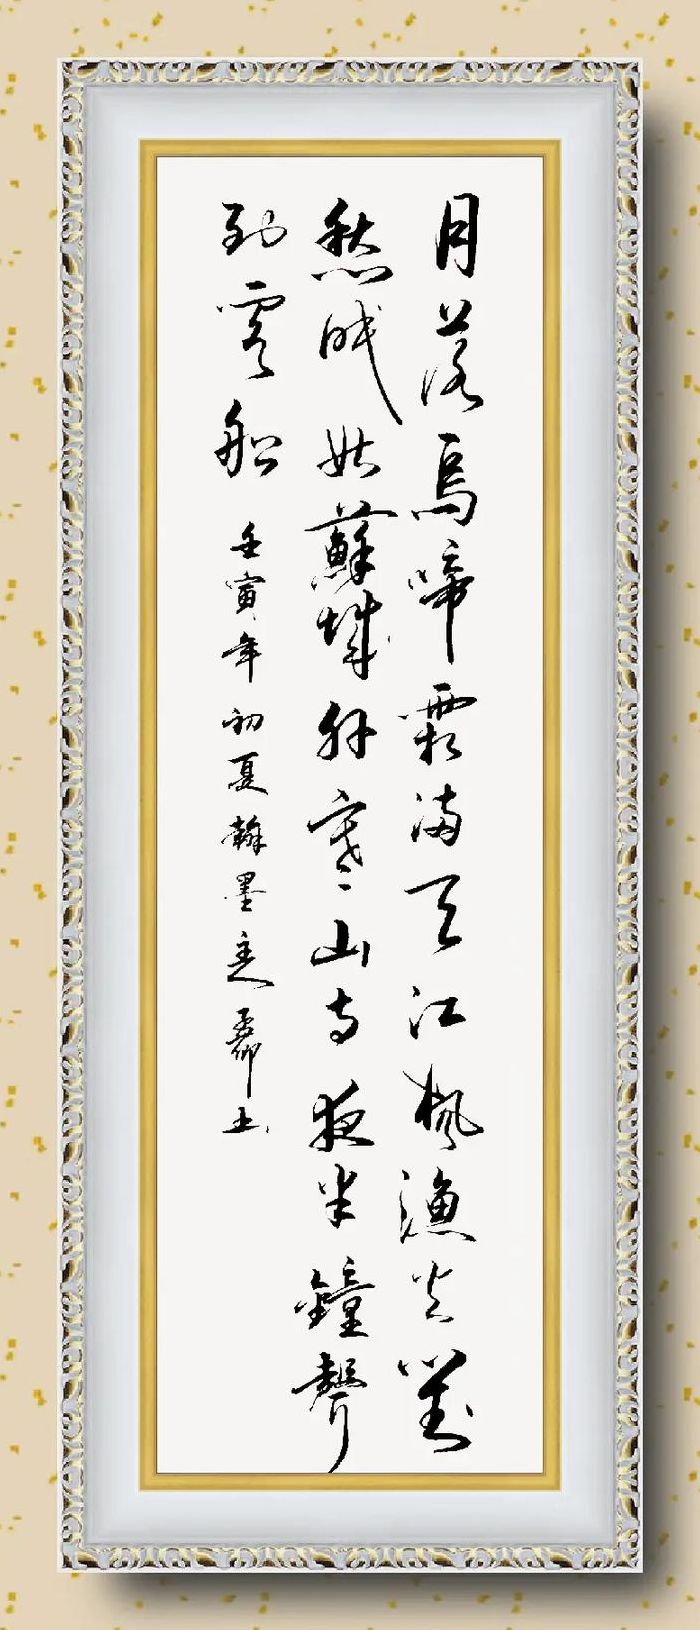 月落烏啼霜滿天江楓漁火對
愁眠姑蘇城外寒山寺夜半鐘聲
到客船
壬寅年初夏翰墨